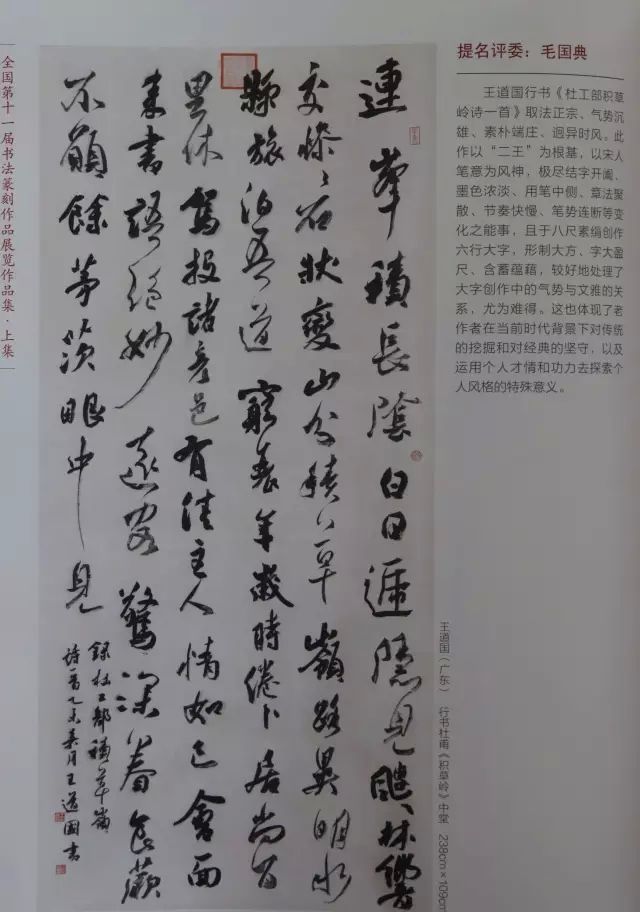 全国第十一届书法篆刻作品展览作品集·上集
提名评委：毛国典
王道国行书《杜工部积草
岭诗一首》取法正宗、气势沉
雄、素朴端庄、迥异时风。此
作以“二王”为根基，以宋人
笔意为风神，极尽结字开阖、
墨色浓淡、用笔中侧、章法聚
散、节奏快慢、笔势连断等变
化之能事，且于八尺素绢创作
六行大字，形制大方、字大盈
尺、含蓄蕴藉，较好地处理了
大字创作中的气势与文雅的关
系，尤为难得。这也体现了老
作者在当前时代背景下对传统
的挖掘和对经典的坚守，以及
运用个人才情和功力去探索个
人风格的特殊意义。
連峯積長陰白日遞隱見飕〻林響
交慘〻石狀變山分積草嶺路異明水
縣旅泊吾道窮衰年歲時倦卜居尚百
里休駕投諸彥邑有佳主人情如已會面
來書語絕妙遠客驚深眷食蕨
不願餘茅茨眼中見
錄杜工部積草嶺
詩一首乙未桑月王道國書
王道国（广东） 行书杜甫《积草岭》中堂 238cm×109cm